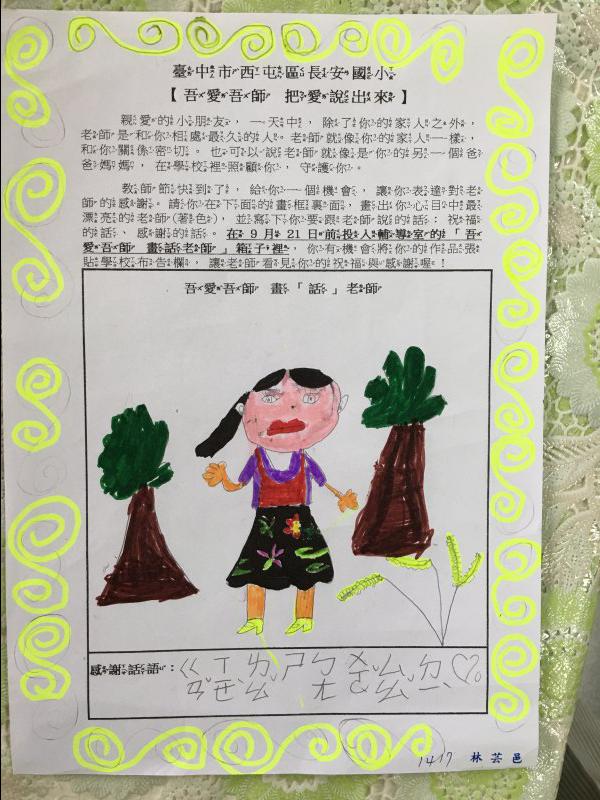 臺中市西屯區長安國小
【吾愛吾師 把愛說出來】
親愛的小朋友,一天中,除了你的家人之外,
老師是和你相處最久的人。老師就像你的家人一樣,
和你關係密切。也可以說老師就像是你的另一個爸
爸媽媽,在學校裡照顧你,守護你。
教師節快到了,給你一個機會,讓你表達對老
師的感謝。請你在下面的畫框裏面,畫出你心目中最
漂亮的老師(著色),並寫下你要跟老師說的話:祝福
的話、感謝的話。在9月21日前投入輔導室的「吾
愛吾師 畫話老師」箱子裡,你有機會將你的作品張
貼學校布告欄,讓老師看見你的祝福與感謝喔!
吾愛吾師 畫「話」老師
感謝話語:
1417 林芸邑